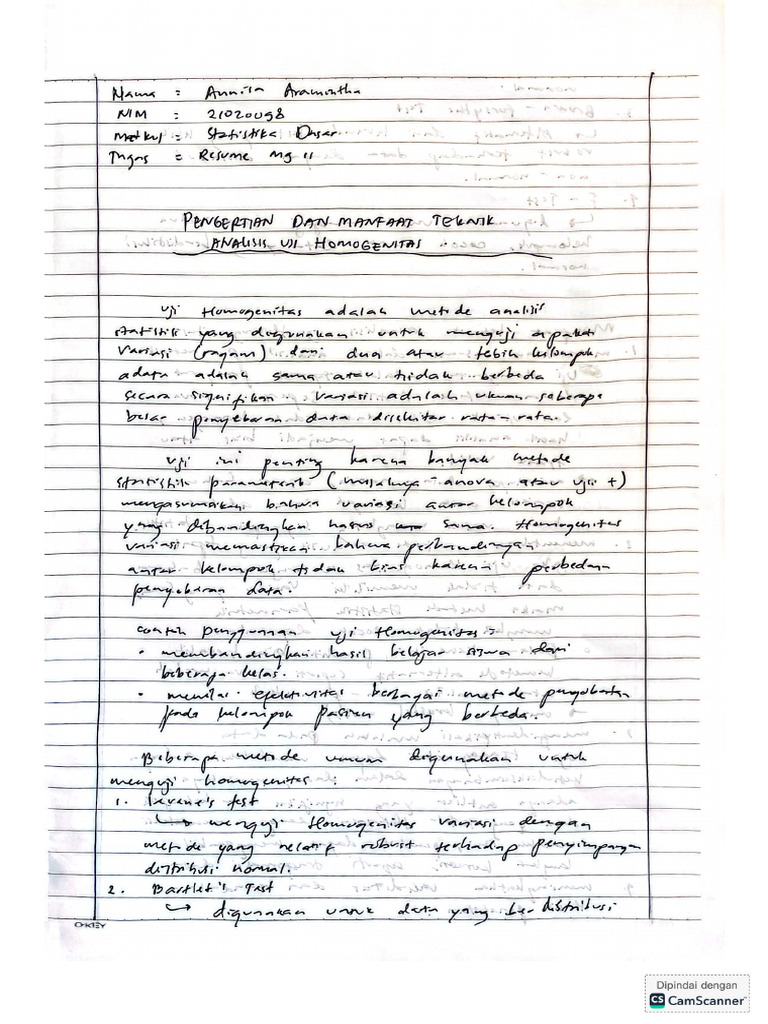 Nama : Annisa Aramintha
NIM : 21020098
Matkul : Statistika Dasar
Tugas : Resume Mg 11
PENGERTIAN DAN MANFAAT TEKNIK
ANALISIS UJI HOMOGENITAS
Uji Homogenitas adalah metode analisis
statistik yang digunakan untuk menguji apakah
variasi (ragam) dari dua atau lebih kelompok
adata adalah sama atau tidak berbeda
secara signifikan. Variasi adalah ukuran seberapa
besar penyebaran data disekitar rata-rata.
Uji ini penting karena banyak metode
statistik parametrik (misalnya anova atau uji t)
mengasumsikan bahwa variasi antar kelompok
yang dibandingkan harus sama. Homogenitas
variasi memastikan bahwa perbandingan
antar kelompok tidak bias karena perbedaan
penyebaran data.
contoh penggunaan uji Homogenitas :
• membandingkan hasil belajar siswa dari
beberapa kelas.
• menilai efektivitas berbagai metode pengobatan
pada kelompok pasien yang berbeda.
Beberapa metode umum digunakan untuk
menguji homogenitas :
1. Levene's test
↳ menguji Homogenitas variasi dengan
metode yang relatif robust terhadap penyimpangan
distribusi normal.
2. Bartlet's Test
↳ digunakan untuk data yang berdistribusi
OKEY
Dipindai dengan
CS CamScanner